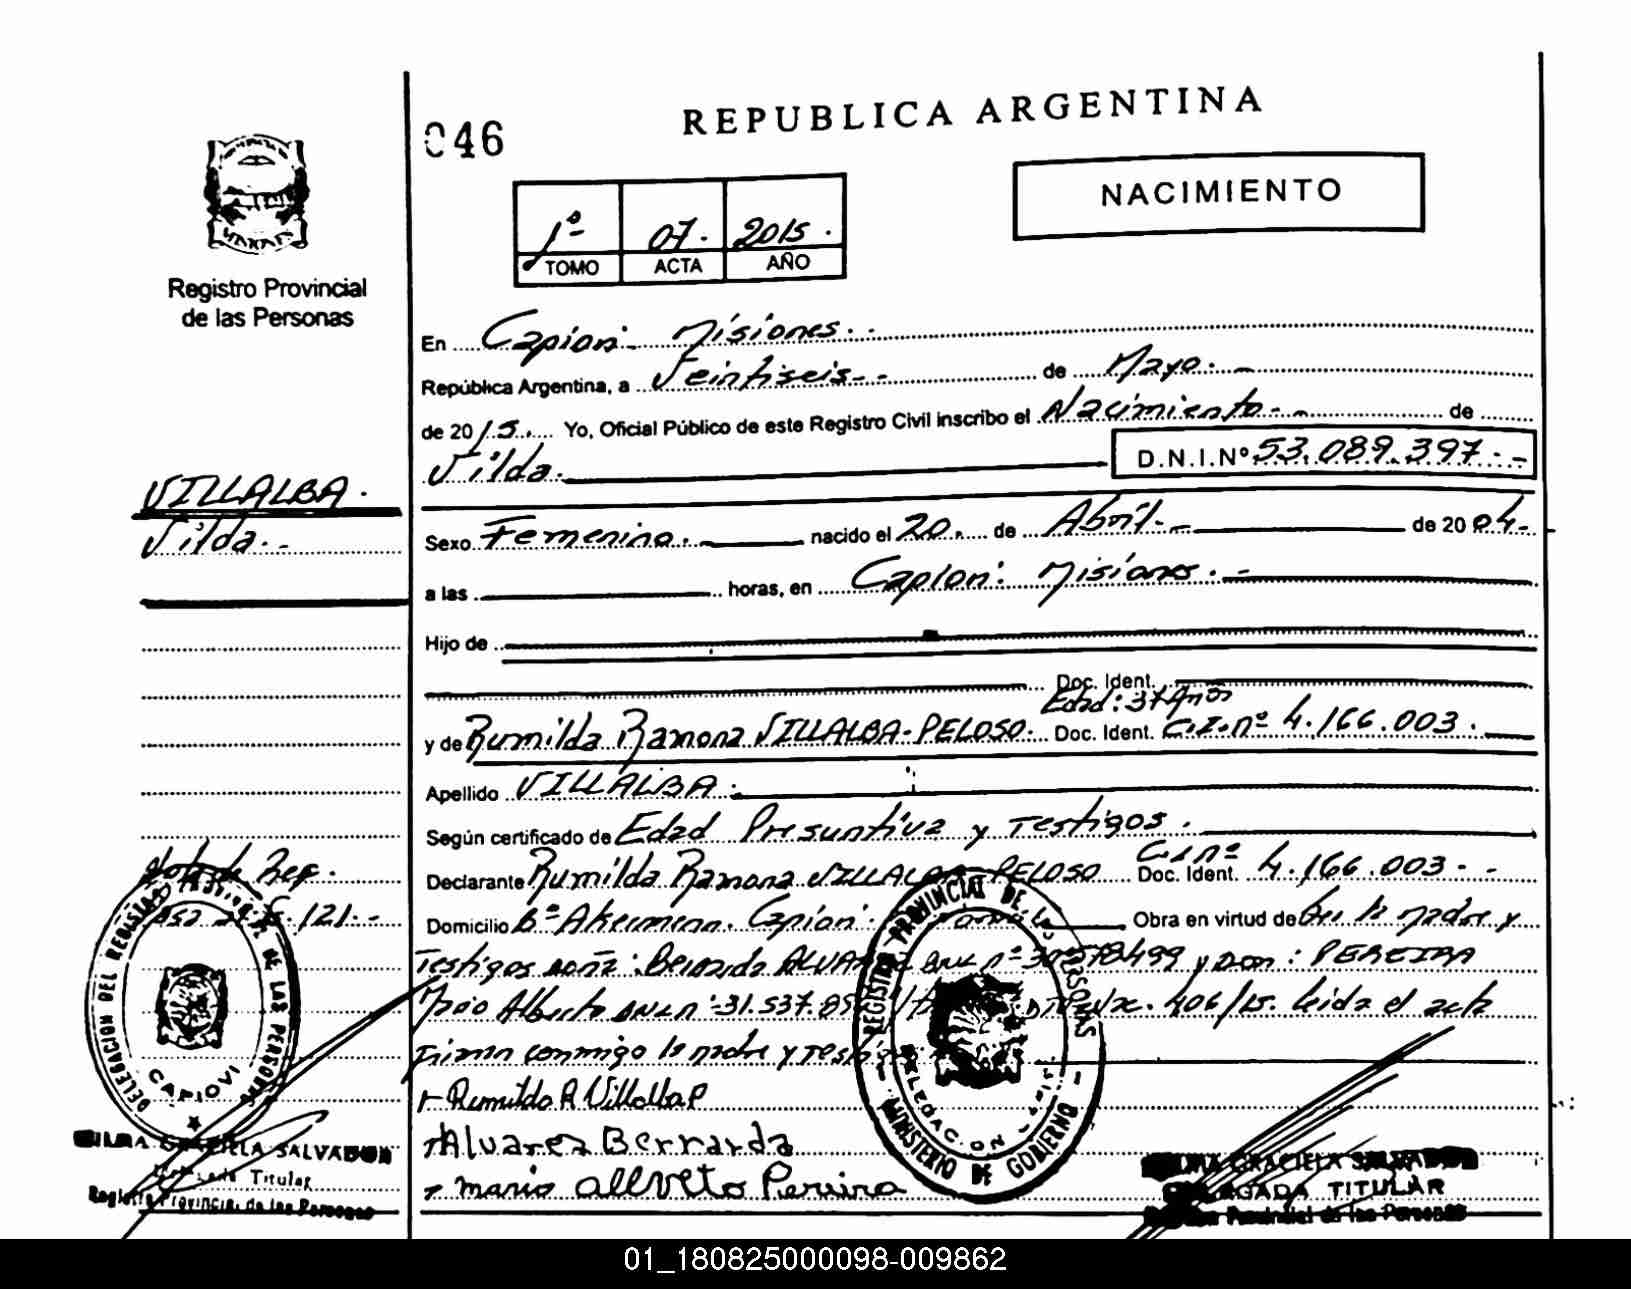 046
REPUBLICA ARGENTINA
NACIMIENTO
1º 07. 2015.
TOMO ACTA AÑO
Registro Provincial
de las Personas
En Capiovi- Misiones.-
República Argentina, a Veintiseis.- de Mayo.-
de 2015. Yo, Oficial Público de este Registro Civil inscribo el Nacimiento.- de
Vilda. D.N.I.Nº 53.089.397.-
VILLALBA.
Vilda.-
Sexo Femenino. nacido el 20. de Abril.- de 2004.-
a las horas, en Capiovi: Misiones.-
Hijo de
Doc. Ident.
Edad: 37 Años
y de Rumilda Ramona VILLALBA-PELOSO. Doc. Ident. C.I.nº 4.166.003.
Apellido VILLALBA.
Según certificado de Edad Presuntiva y Testigos.
Declarante Rumilda Ramona VILLALBA-PELOSO Doc. Ident. C.I.nº 4.166.003.-
Domicilio Bº Akerman. Capiovi. Obra en virtud de la madre y
Testigos doña: nº y Don: PEREIRA
Alberto 406/15. leida el acta
Firman conmigo la madre y
Rumilda R Villalba P
Alvarez Bernarda
mario Pereira
nota de Ref.
121.-
DELEGACION DEL REGISTRO DE LAS PERSONAS
CAPIOVI
REGISTRO PROVINCIAL DE LAS PERSONAS
DELEGACION
MINISTERIO DE GOBIERNO
GRACIELA SALVADOR
Titular
Registro Provincial de las Personas
GRACIELA
DELEGADA TITULAR
Provincial de las Personas
01_180825000098-009862